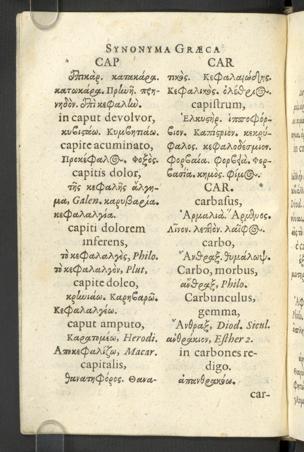 SYNONYMA GRÆCA
CAP
ἐπικάρ. κατακάρα.
κατωκάρα. Πρηνῆ. πρη-
νηδόν. ἐπὶ κεφαλίω.
in caput devolvor,
κυβιστάω.
capite acuminato,
Προκέφαλ@. Φοξός.
capitis dolor,
τῆς κεφαλῆς ἄλγη-
μα, Galen. καρηβαρία.
κεφαλαλγία.
capiti dolorem
inferens,
τὸ κεφαλαλγὲς, Philo.
τὸ κεφαλαλγόν, Plut.
capite doleo,
Καρηβαρῶ.
Κεφαλαλγέω.
caput amputo,
Καρατομέω, Herodi.
Macar.
capitalis,
θανατηφόρος. Θανα-
CAR
τικός. Κεφαλαιώδης.
Κεφαλικός. ὀλέθρι@.
capistrum,
Καπίστριον.
φαλος. κεφαλοδέσμιον.
Φορβαία. Φορβειά. Φορ-
κημὸς. φίμ@.
CAR.
carbasus,
λεπτὸν.
carbo,
Ἄνθραξ. θυμάλωψ.
Carbo, morbus,
ἄνθραξ, Philo.
Carbunculus,
gemma,
Ἄνθραξ, Diod. Sicul.
ἀνθράκιον, Esther 2.
in carbones re-
digo.
ἀπανθρακόω.
car-